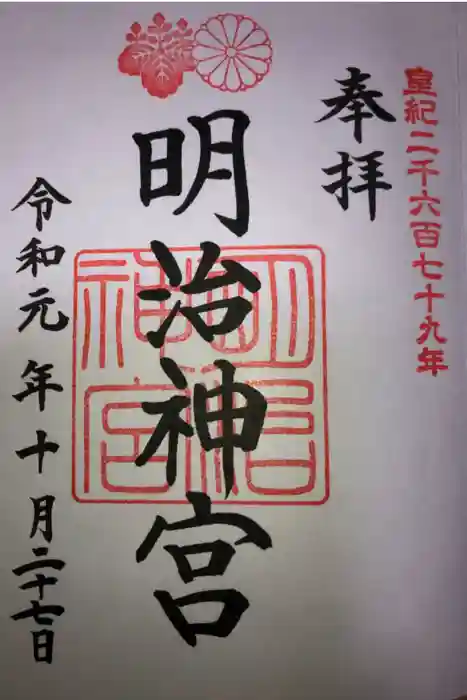 皇紀二千六百七十九年
奉拝
明治神宮
明治神宮
令和元年十月二十七日